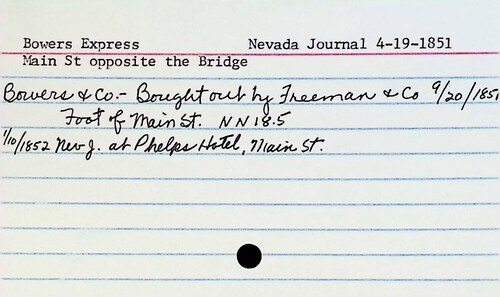 Bowers Express Nevada Journal 4-19-1851
Main St opposite the Bridge
Bowers & Co.- Bought out by Freeman & Co 9/20/1851
Foot of Main St. NN 18.5
1/10/1852 Nev J. at Phelps Hotel, Main St.